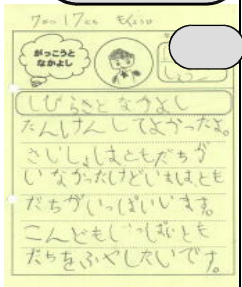 7がつ17にち もくようび
がっこうと
なかよし
しびらきと なかよし
たんけんしてよかったよ。
さいしょはともだちが
いなかったけどいまはとも
だちがいっぱいいます。
こんどもいっぱいとも
だちをふやしたいです。